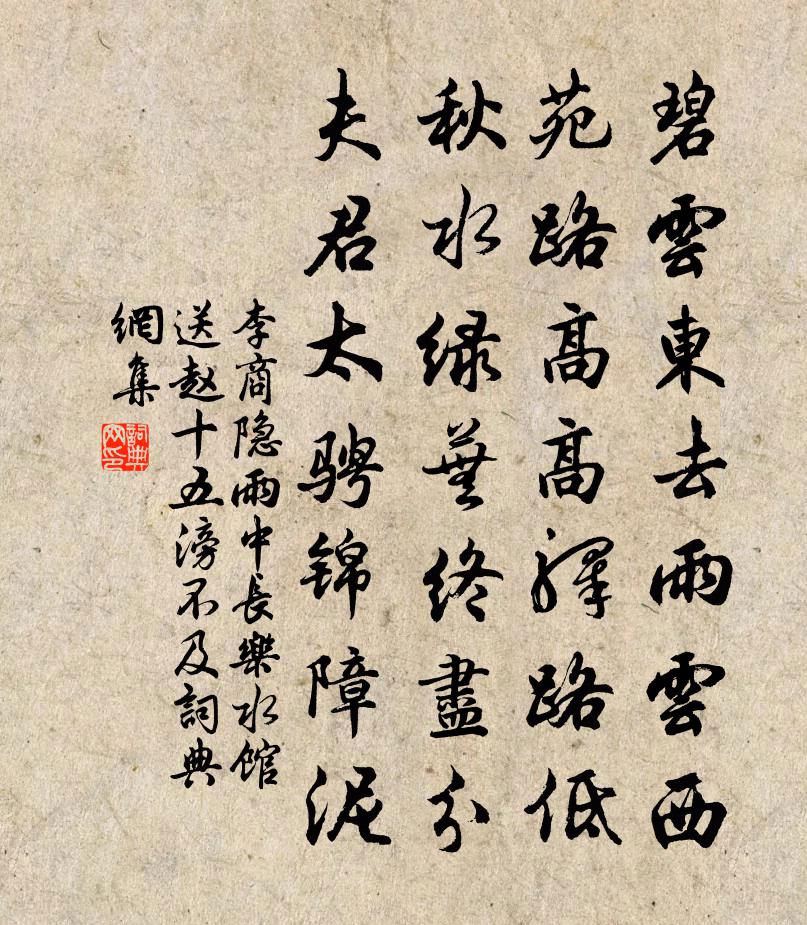 碧雲東去雨雲西
苑路高高驛路低
秋水绿蕪終盡分
夫君太骋锦障泥
李商隐雨中長樂水館
送赵十五滂不及詞典
網集
詞典
网印